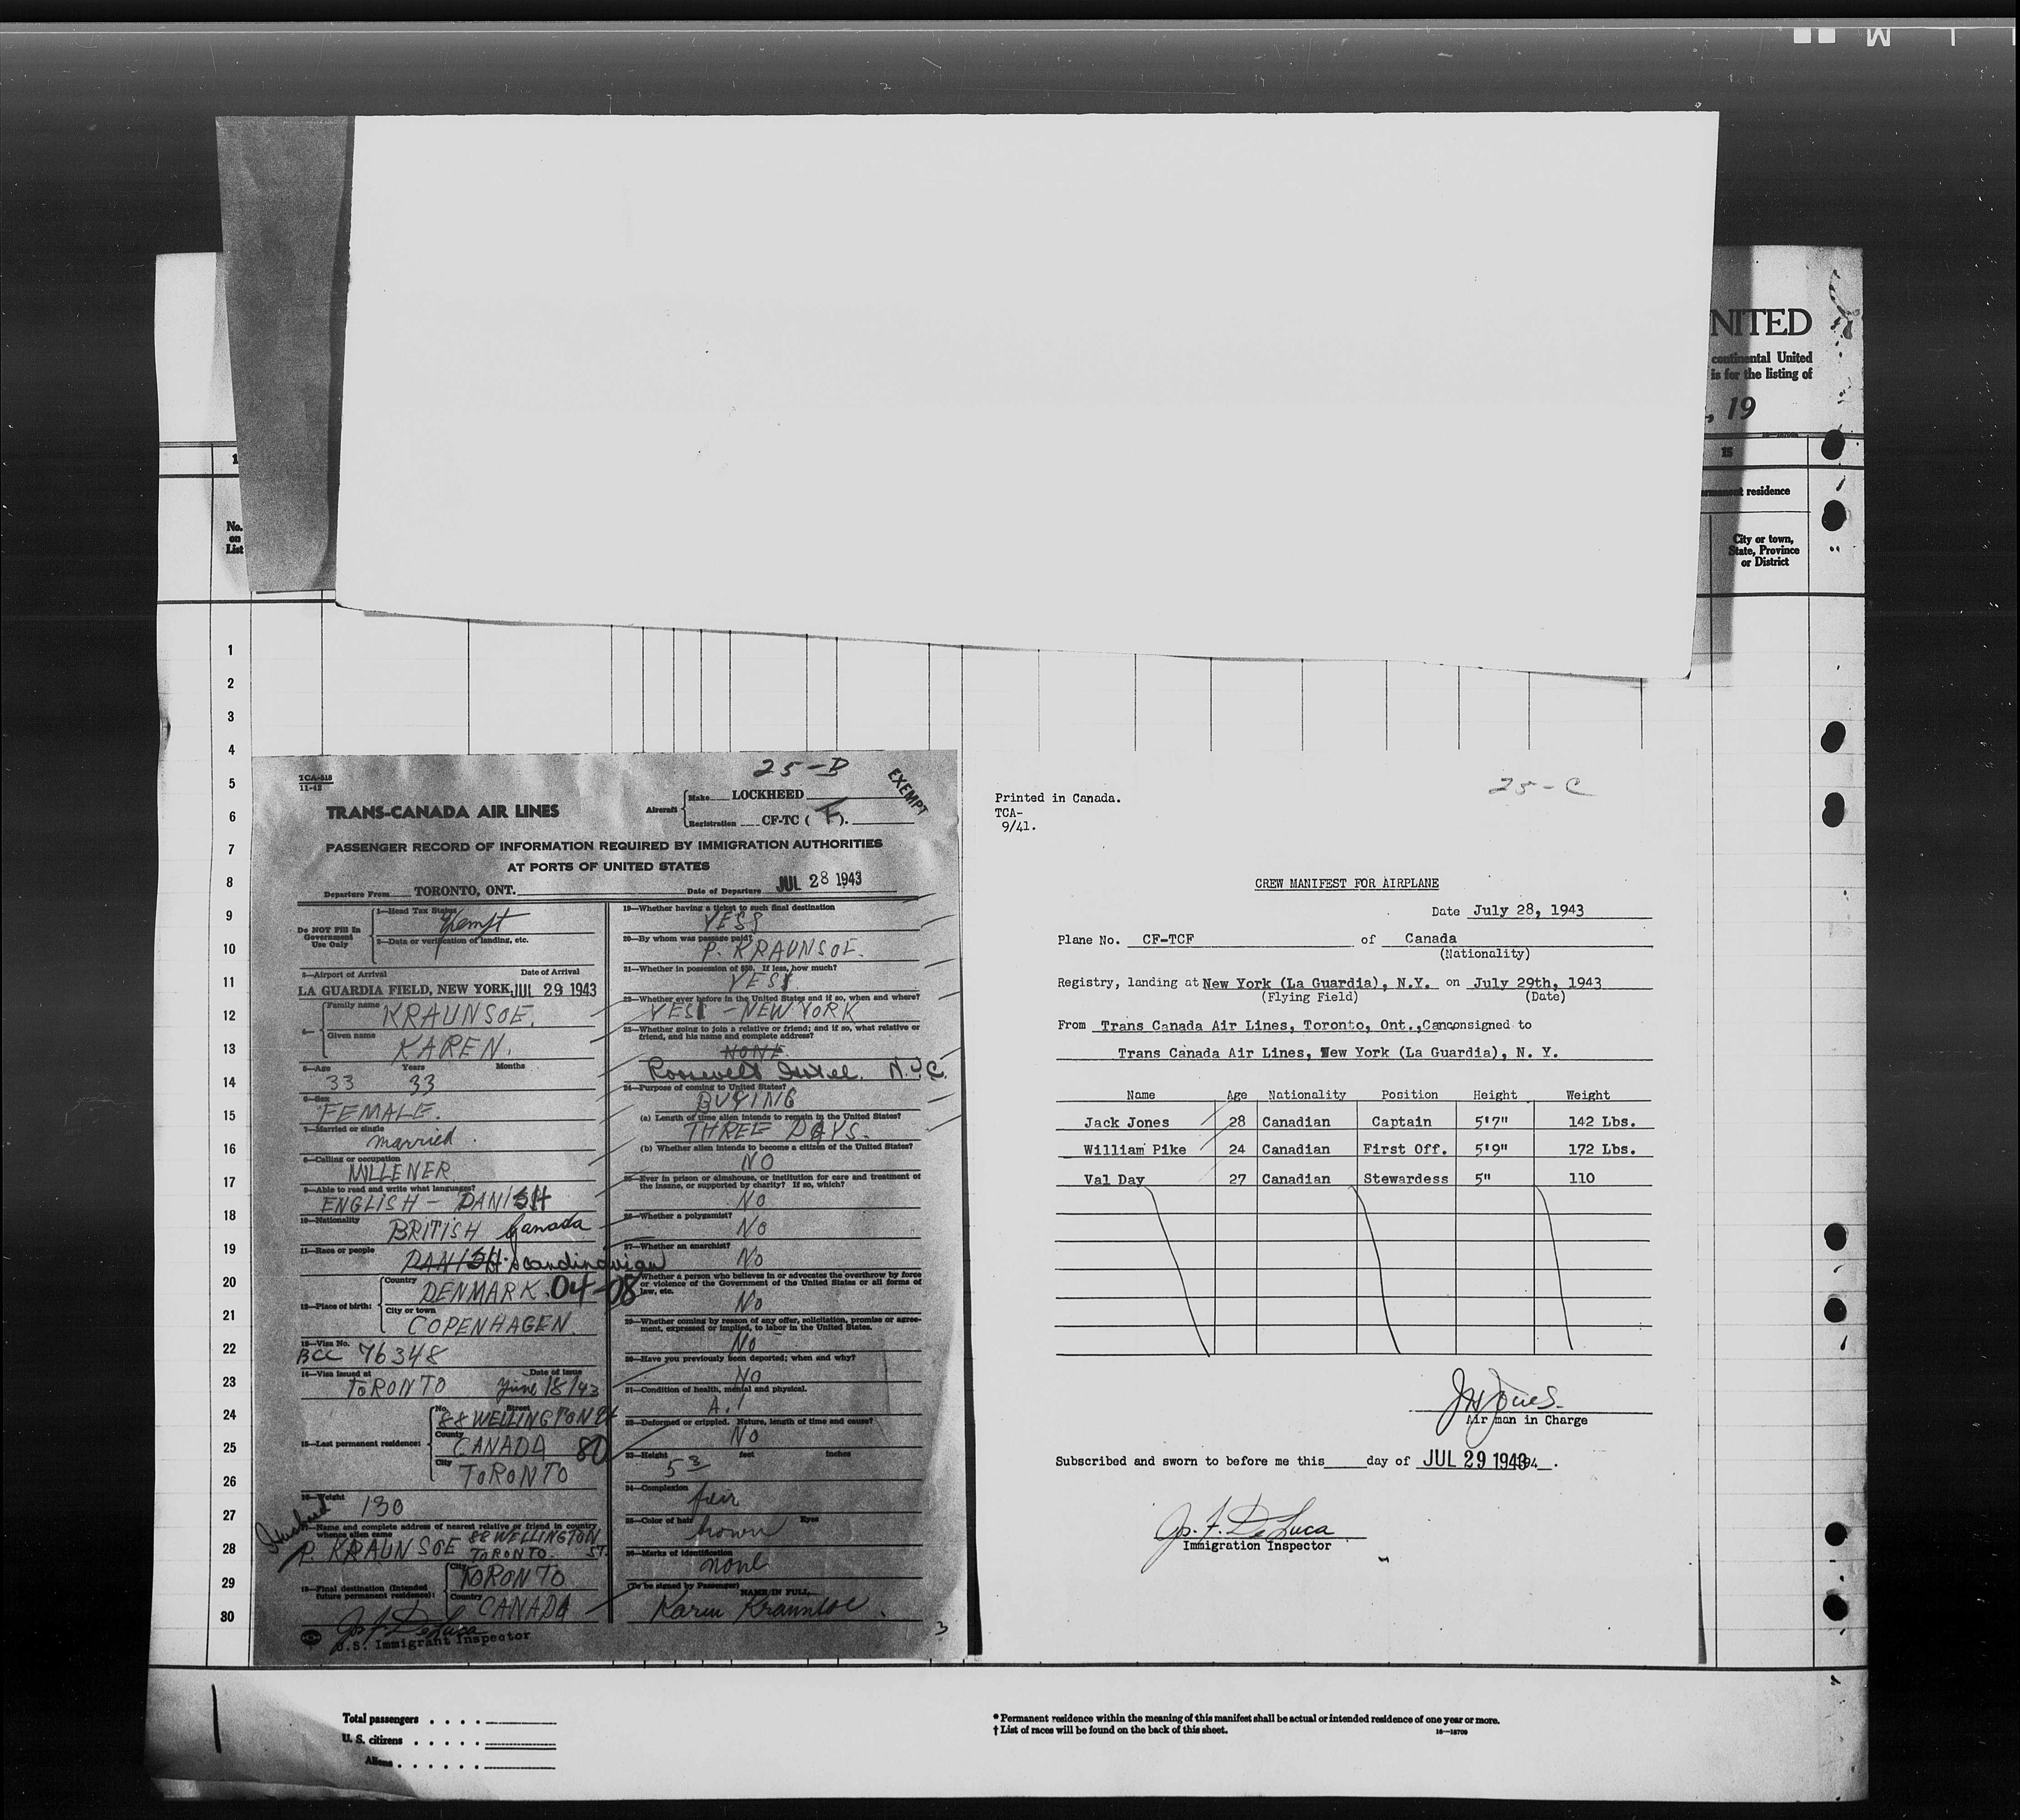 NITED
continental United
is for the listing of
, 19
1
15
permanent residence
No.
on
List
City or town,
State, Province
or District
1
2
3
4
5
6
7
8
9
10
11
12
13
14
15
16
17
18
19
20
21
22
23
24
25
26
27
28
29
30
25-B
EXEMPT
TCA-518
11-42
TRANS-CANADA AIR LINES
Aircraft
Make LOCKHEED
Registration CF-TC ( F ).
PASSENGER RECORD OF INFORMATION REQUIRED BY IMMIGRATION AUTHORITIES
AT PORTS OF UNITED STATES
Departure From TORONTO, ONT. Date of Departure JUL 28 1943
Do NOT Fill In
Government
Use Only
1—Head Tax Status
Exempt
2—Data or verification of landing, etc.
3—Airport of Arrival Date of Arrival
LA GUARDIA FIELD, NEW YORK, JUL 29 1943
4— Family name
KRAUNSOE.
Given name
KAREN.
5—Age Years Months
33 33
6—Sex
FEMALE.
7—Married or single
married.
8—Calling or occupation
MILLENER
9—Able to read and write what languages?
ENGLISH - DANISH
10—Nationality
BRITISH Canada
11—Race or people
DANISH. Scandinavian
12—Place of birth:
Country
DENMARK. 04-08
City or town
COPENHAGEN.
13—Visa No.
BCC 76348
14—Visa Issued at Date of Issue
TORONTO June 18/43
15—Last permanent residence:
No. Street
88 WELLINGTON St
County
CANADA 80
City
TORONTO
16—Weight
130
Husband
17—Name and complete address of nearest relative or friend in country
whence alien came
P. KRAUNSOE 88 WELLINGTON ST.
TORONTO.
18—Final destination (Intended
future permanent residence):
City
TORONTO
Country
CANADA
Jos. F. DeLuca
U.S. Immigrant Inspector
19—Whether having a ticket to such final destination
YES
20—By whom was passage paid?
P. KRAUNSOE.
21—Whether in possession of $50. If less, how much?
YES
22—Whether ever before in the United States and if so, when and where?
YES - NEW YORK
23—Whether going to join a relative or friend; and if so, what relative or
friend, and his name and complete address?
NONE.
Roosevelt Hotel. N.Y.C.
24—Purpose of coming to United States?
BUYING
(a) Length of time alien intends to remain in the United States?
THREE DAYS.
(b) Whether alien intends to become a citizen of the United States?
NO
25—Ever in prison or almshouse, or institution for care and treatment of
the insane, or supported by charity? If so, which?
NO
26—Whether a polygamist?
NO
27—Whether an anarchist?
NO
28—Whether a person who believes in or advocates the overthrow by force
or violence of the Government of the United States or all forms of
law, etc.
No
29—Whether coming by reason of any offer, solicitation, promise or agree-
ment, expressed or implied, to labor in the United States.
No
30—Have you previously been deported; when and why?
NO
31—Condition of health, mental and physical.
A.1
32—Deformed or crippled. Nature, length of time and cause?
NO
33—Height feet inches
5 3
34—Complexion
fair
35—Color of hair Eyes
brown
36—Marks of identification
none
(To be signed by Passenger) NAME IN FULL
Karen Kraunsoe.
3
25-C
Printed in Canada.
TCA-
9/41.
CREW MANIFEST FOR AIRPLANE
Date July 28, 1943
Plane No. CF-TCF of Canada
(Nationality)
Registry, landing at New York (La Guardia), N.Y. on July 29th, 1943
(Flying Field) (Date)
From Trans Canada Air Lines, Toronto, Ont.,Canconsigned to
Trans Canada Air Lines, New York (La Guardia), N. Y.
Name Age Nationality Position Height Weight
Jack Jones 28 Canadian Captain 5'7" 142 Lbs.
William Pike 24 Canadian First Off. 5'9" 172 Lbs.
Val Day 27 Canadian Stewardess 5" 110
J H Jones.
Air man in Charge
Subscribed and sworn to before me this day of JUL 29 1943 194 .
Jos. F. DeLuca
Immigration Inspector
Total passengers . . . .
U. S. citizens . . . . .
Aliens . . . . . .
* Permanent residence within the meaning of this manifest shall be actual or intended residence of one year or more.
† List of races will be found on the back of this sheet. 16—18709